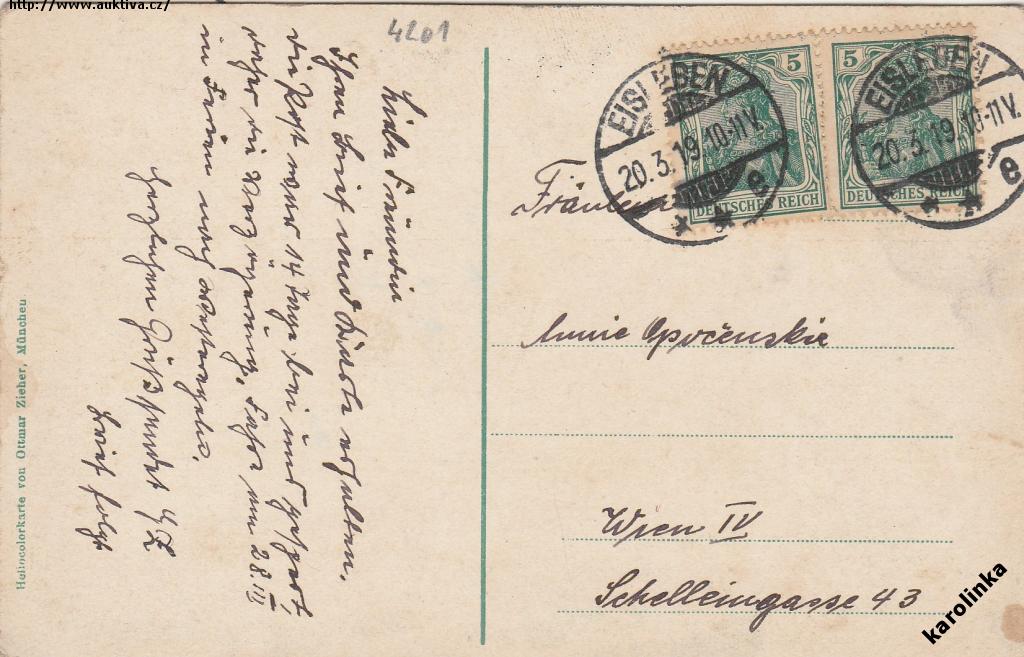 http://www.auktiva.cz/
4201
Liebe Freundin
Ihren Brief und Karte erhalten.
die Post war 14 Tage bei uns gesperrt,
daher die Verzögerung. Fahre am 28. III
in Ferien nach
Herzlichen Gruß sendet
Brief folgt
Heliocolorkarte von Ottmar Zieher, München
5
5
DEUTSCHES REICH
DEUTSCHES REICH
EISLEBEN
20.3.19.10-11V.
e
EISLEBEN
20.3.19.10-11V.
e
Fräulein
Annie Opočenskie
Wien IV
Schelleingasse 43
karolinka